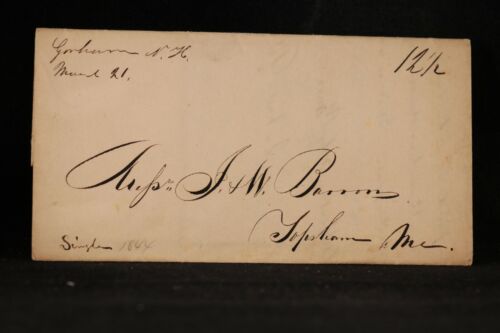 Gorham N. H.
March 21.
12 1/2
Messrs. J & W. Barron
Topsham Me.
Single 1844